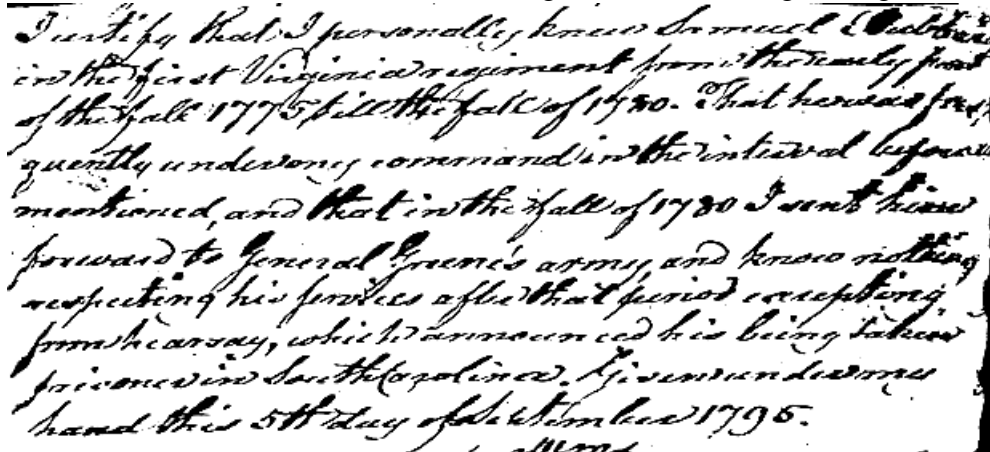 I certify that I personally knew Samuel
in the first Virginia regiment from the early part
of the fall 1775 till the fall of 1780. That he was fre-
quently under my command in the interval before
mentioned, and that in the fall of 1780 I sent him
forward to General Greene's army, and know nothing
respecting his services after that period excepting
from hearsay, which announced his being taken
prisoner in South Carolina. Given under my
hand this 5th day of September 1795.